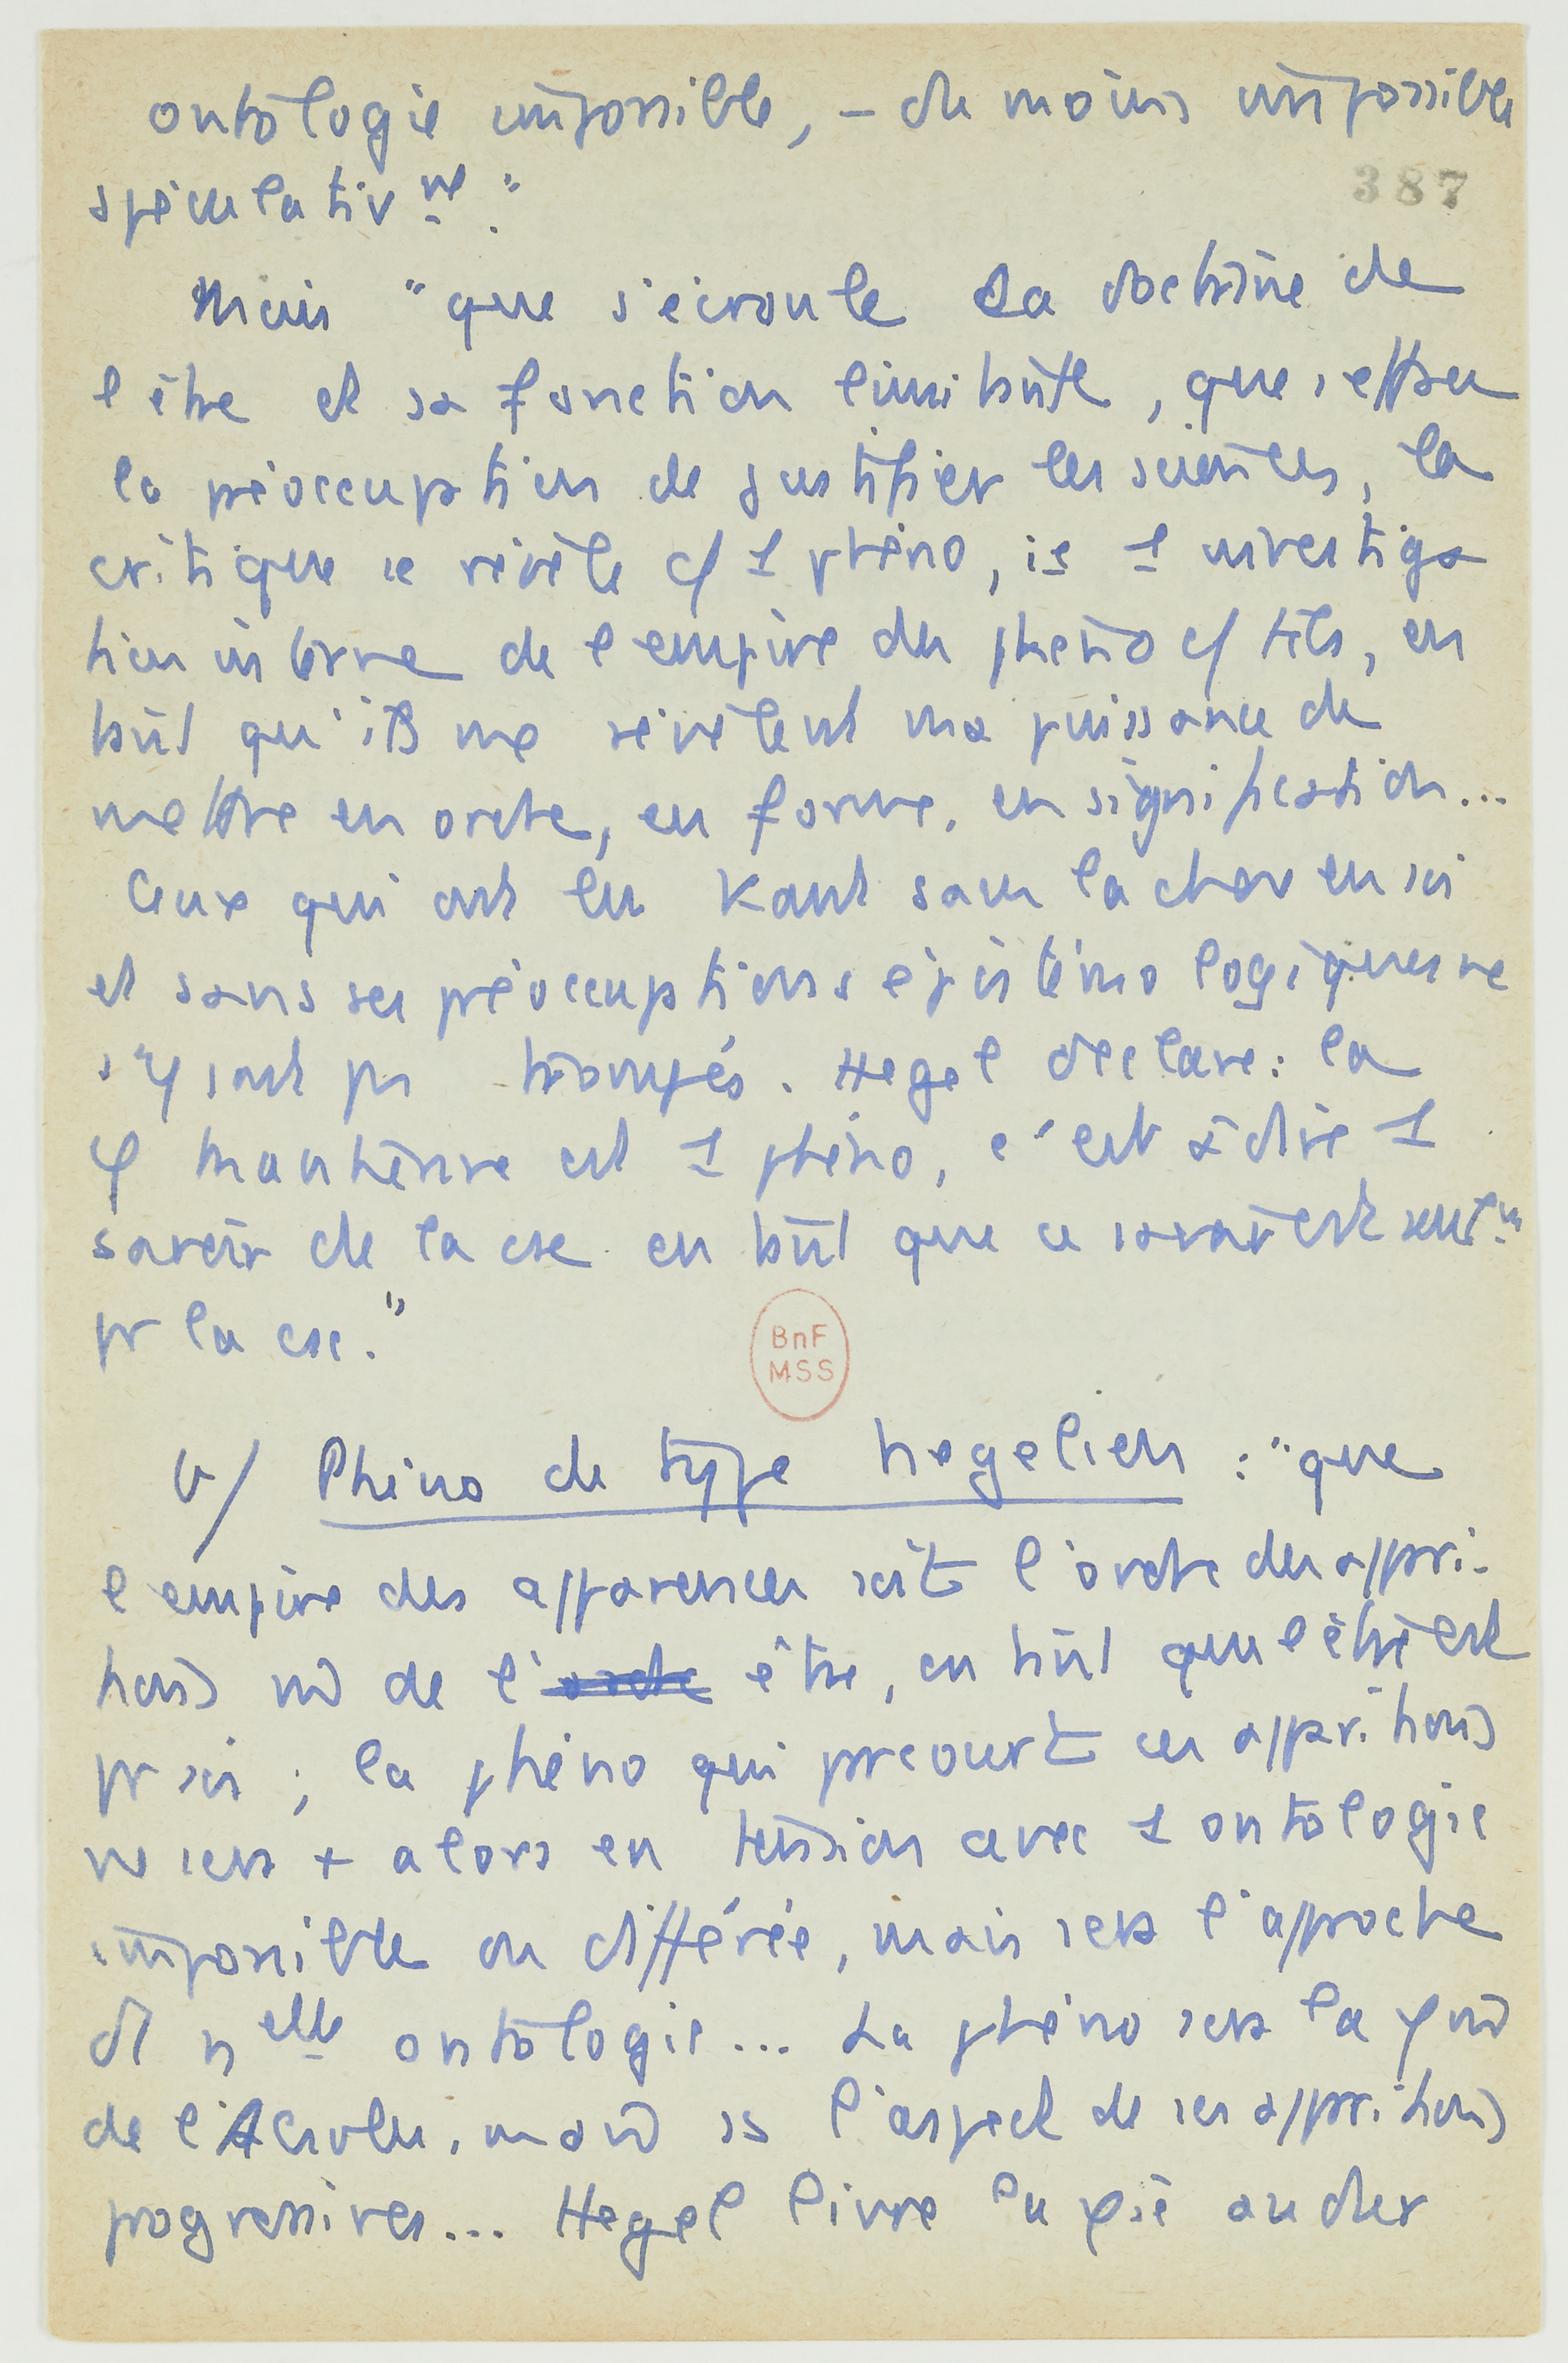 ontologie impossible, – du moins impossible
387
spéculativᵐᵉ."
Mais "que s'écroule la doctrine de
l'être et sa fonction limitative, que s'efface
la préoccupation de justifier les sciences, la
critique se révèle c/ 1 phéno, ie 1 investiga
tion interne de l'empire des phéno c/ tels, en
tant qu'ils me révèlent ma puissance de
mettre en ordre, en forme, en signification...
Ceux qui ont lu Kant sans la chose en soi
et sans ses préoccupations épistémologiques ne
s'y sont pas trompés. Hegel déclare : la
φ kantienne est 1 phéno, c'est à dire 1
savoir de la csc en tant que ce savoir est seulᵗ
pr la csc."
BnF
MSS
b/ Phéno de type hegelien : "que
l'empire des apparences soit l'ordre des appari-
tions de l'ordre être, en tant que l'être est
pr soi ; la phéno qui parcourt ces apparitions
ne sera + alors en tension avec 1 ontologie
impossible ou différée, mais sera l'approche
d'1 nelle ontologie... La phéno sera la φ
de l'Absolu, ss l'aspect de ses apparitions
progressives... Hegel livre la φie au der